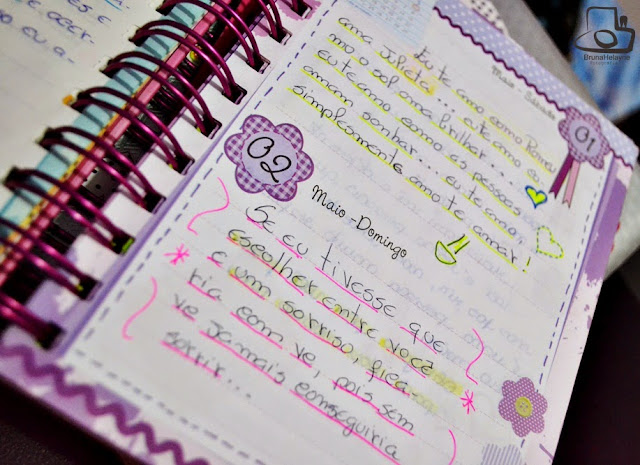 BrunaHelayne
Fotografias
Maio - Sábado
01
Eu te amo como Romeu
ama Julieta... eu te amo co
mo o sol ama brilhar...
eu te amo como as pessoas
amam sonhar... eu te amo,
simplesmente amo te amar!
02
Maio - Domingo
Se eu tivesse que
escolher entre você
e um sorriso, fica-
ria com vc, pois sem
vc jamais conseguiria
sorrir...